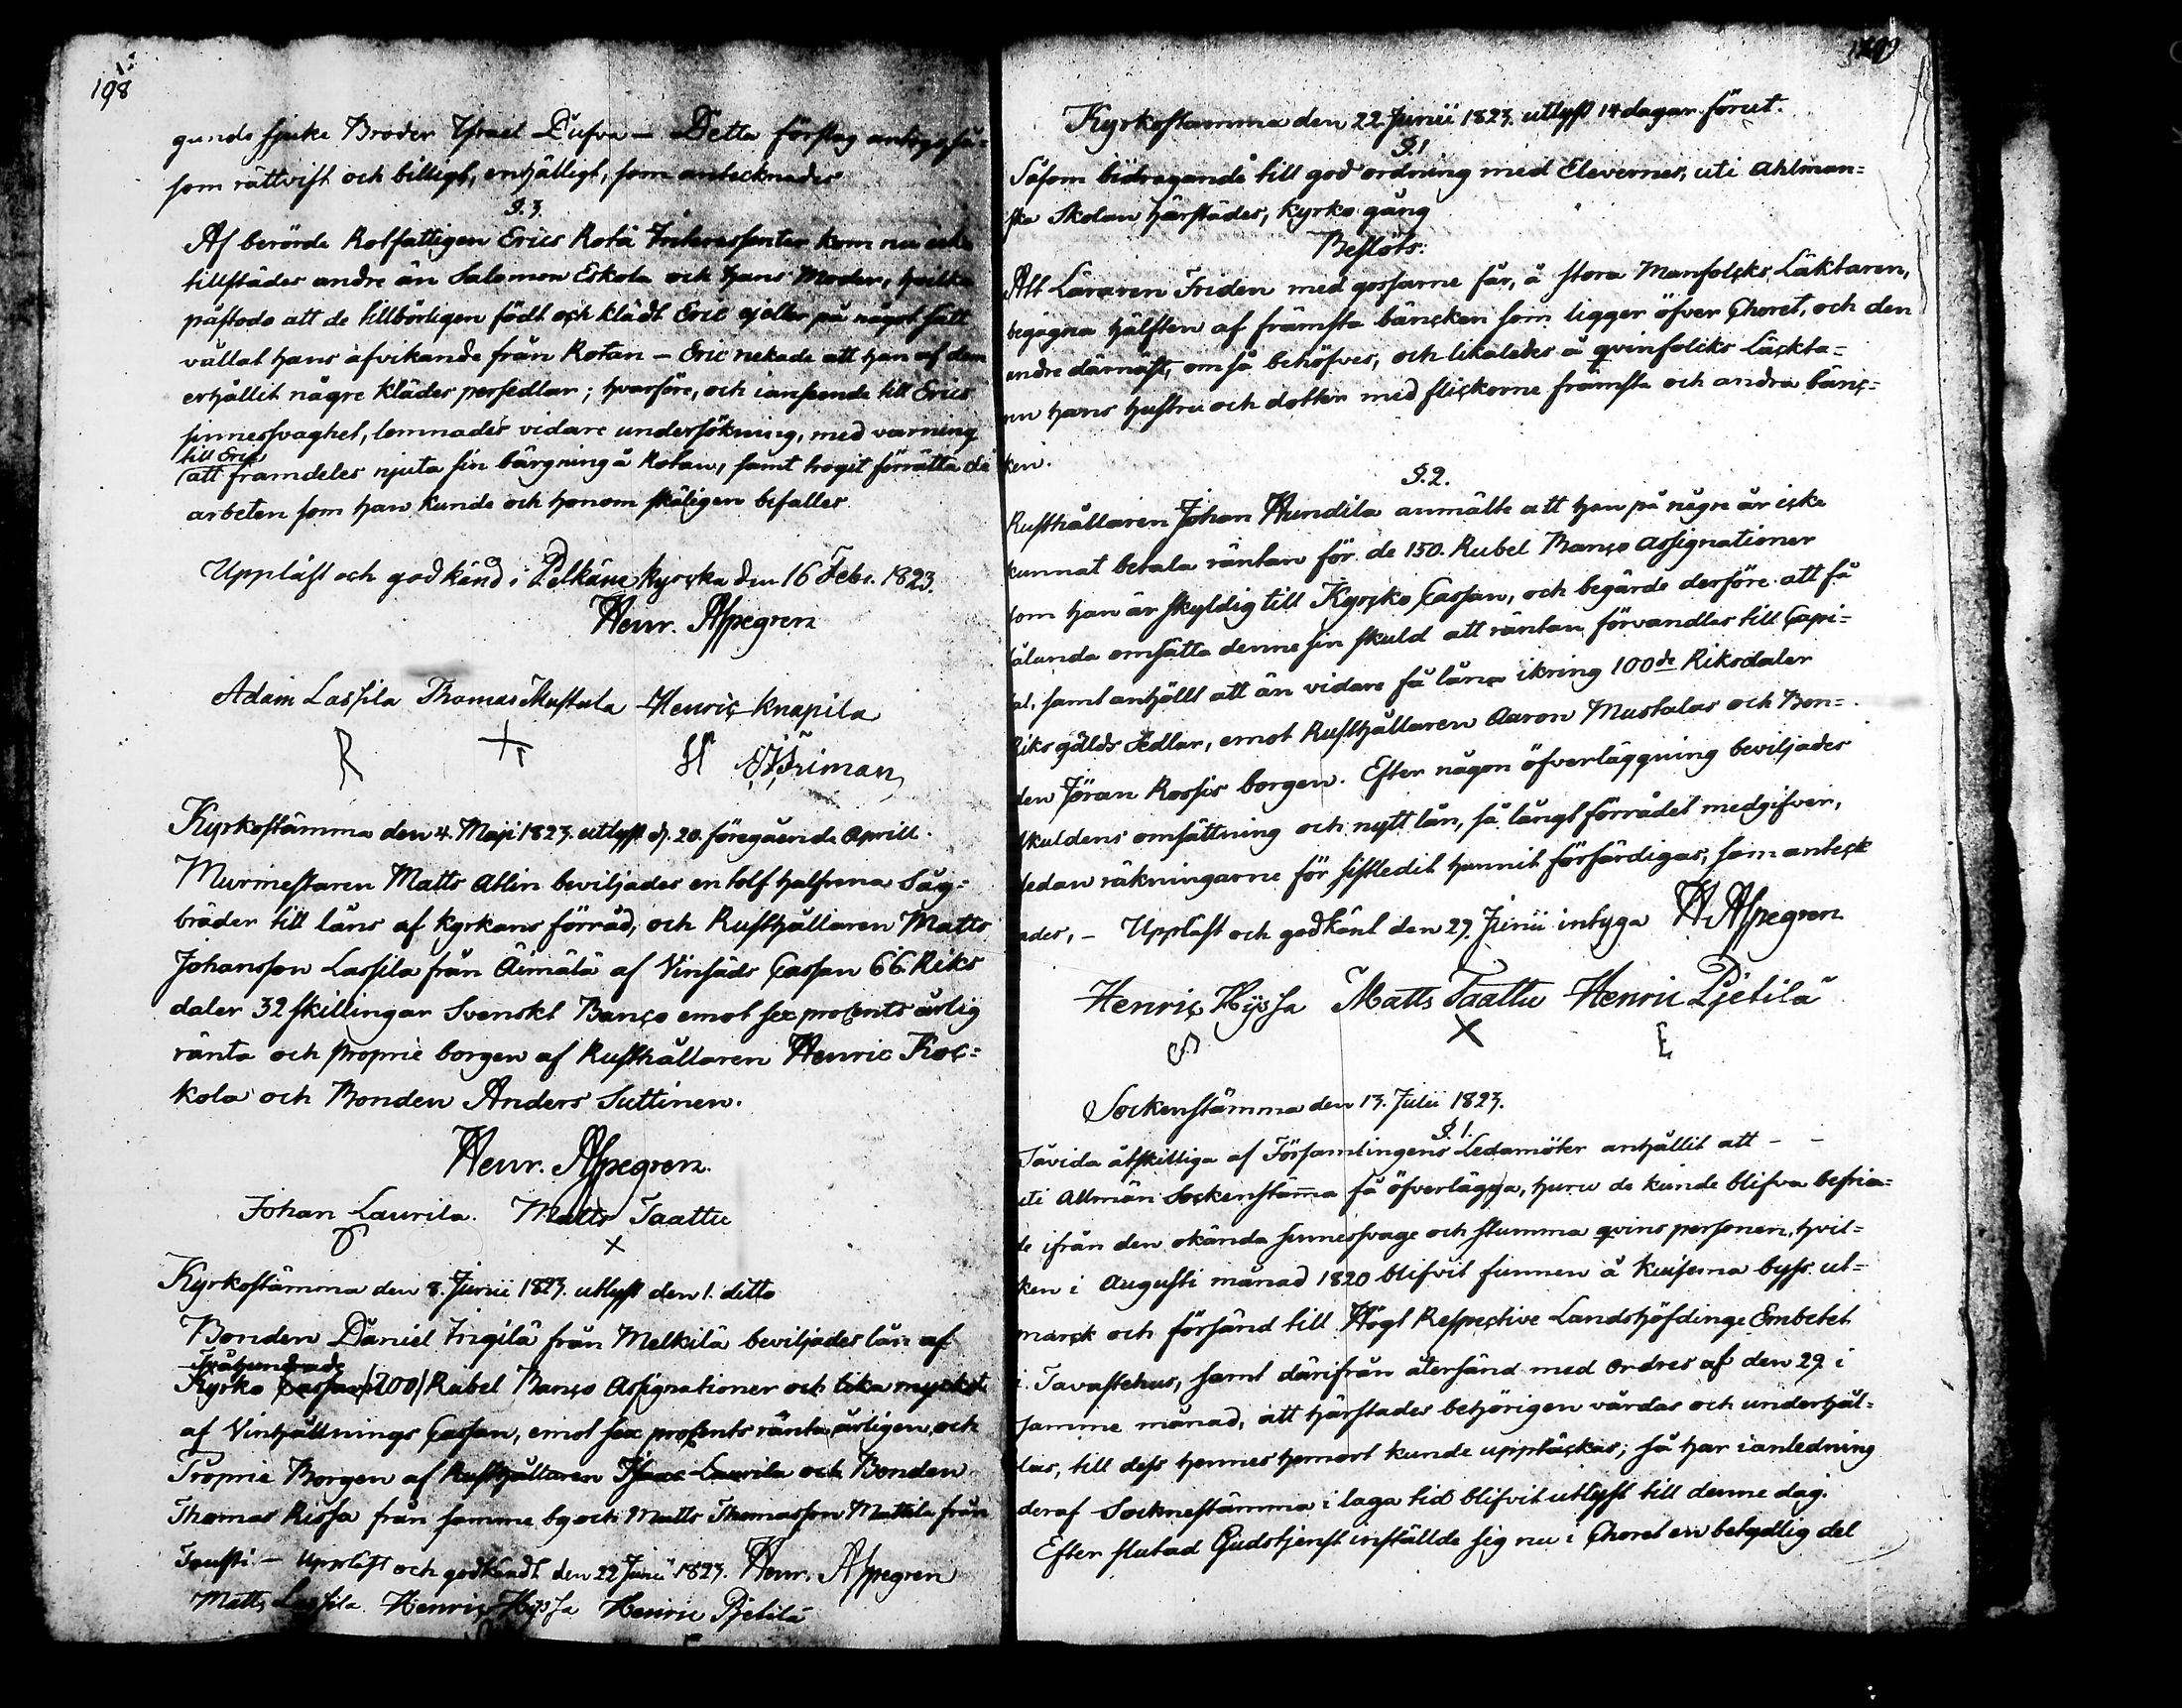 198
gunds sjuke Broder Israel Dufva — Detta förslag antogs, så-
som rättvist och billigt, enhälligt, som antecknades
§. 3.
Af berörde Rotfattigen Erics Rota Interessenter kom nu icke
tillstädes andre än Salomon Eskola och hans Moder, hvilka
påstodo att de tillbörligen födt och klädt Eric ej eller på något sätt
vållat hans afvikande från Rotan — Eric nekade att han af dem
erhållit någre klädes persedlar; hvarföre, och i anseende till Erics
sinnessvaghet, lemnades vidare undersökning, med varning
till Eric
att framdeles njuta sin bärgning å Rotan, samt trogit förrätta de
arbeten som han kunde och honom skäligen befalles.
Uppläst och godkänd i Pelkäne kyrcka den 16 Febr. 1823.
Henr. Aspegren
Adam Lassila Thomas Mustala Henric Knapila
Kyrkostämma den 4. Maji 1823. utlyst d. 20. föregående Aprill.
Murmestaren Matts Atlin beviljades en tolf halfrena Såg-
bräder till låns af kyrkans förråd, och Rusthållaren Matts
Johansson Lassila från Äimälä af Vinsäds Cassan 66. Riks
daler 32 skillingar Svenskt Banco emot sex procents årlig
ränta och proprie borgen af Rusthållaren Henric Koc-
kola och Bonden Anders Suttinen.
Henr. Aspegren.
Johan Laurila. Matts Taattu
Kyrkostämma den 8. Junii 1823. utlyst den 1. ditto
Bonden Daniel Ingilä från Melkilä beviljades lån af
Tvåhundrade
Kyrko Cassan (200) Rubel Banco Assignationer och lika mycket
af Vinhållnings Cassan, emot sex procents ränta årligen, och
Proprie Borgen af Rusthållaren Isaac Laurila och Bonden
Thomas Rissa från samme by och Matts Thomasson Mattila från
Tausti. — Uppläst och godkändt den 22 Junii 1823. Henr. Aspegren
Matts Lassila. Henric Hyssa Henric Pjetilä
Kyrkostämma den 22. Junii 1823. utlyst 14 dagar förut.
§. 1
Såsom bidragande till god ordning med Elevernes, uti Ahlman-
ska Skolan härstädes, kyrko gång
Beslöts:
Att Läraren Friden med gossarne får, å stora Manfolcks Läktaren,
begagna hälften af främsta bäncken som ligger öfver Choret, och den
andre därnäst, om så behöfves, och likaledes å qvinfolcks Läckta-
ren hans hustru och dotter med flickorne främsta och andra bänc-
ken.
§. 2.
Rusthållaren Johan Hundila anmälte att han på någre år icke
kunnat betala räntan för de 150. Rubel Banco Assignationer
som han är skyldig till Kyrcko Cassan, och begärde derföre att få
sålunda omsätta denne sin skuld att räntan förvandlas till Capi-
tal, samt anhöllt att än vidare få låna ikring 100de Riksdaler
Riksgälds Sedlar, emot Rusthållaren Aaron Mustalas och Bon-
den Jöran Rossis borgen. Efter någon öfverläggning beviljades
skuldens omsättning och nytt lån, så långt förrådet medgifver,
sedan räkningarne för sistledit hunnit försärdigas, som anteck
nades, — Uppläst och godkänt den 29. Junii intyga H. Aspegren.
Henric Hyssa Matts Taattu Henric Pjetilä
Sockenstämma den 13. Julii 1823.
§. 1.
Såvida åtskilliga af Församlingens Ledamöter anhållit att — —
uti Allmän Sockenstämma få öfverlägga, huru de kunde blifva befria-
de ifrån den okända sinnessvage och stumma qvins personen, hvil-
ken i Augusti månad 1820 blifvit funnen å Kuisema byss ut-
marck och försänd till Högl Respective Landshöfdinge Embetet
i Tavastehus, samt därifrån återsänd med Ordres af den 29 i
samme månad, att härstädes behörigen vårdas och underhål-
las, till dess hennes hemort kunde upptäckas; så har i anledning
deraf Sockenstämma i laga tid blifvit utlyst till denne dag.
Efter slutad Gudstjenst inställde sig nu i Choret en betydlig del